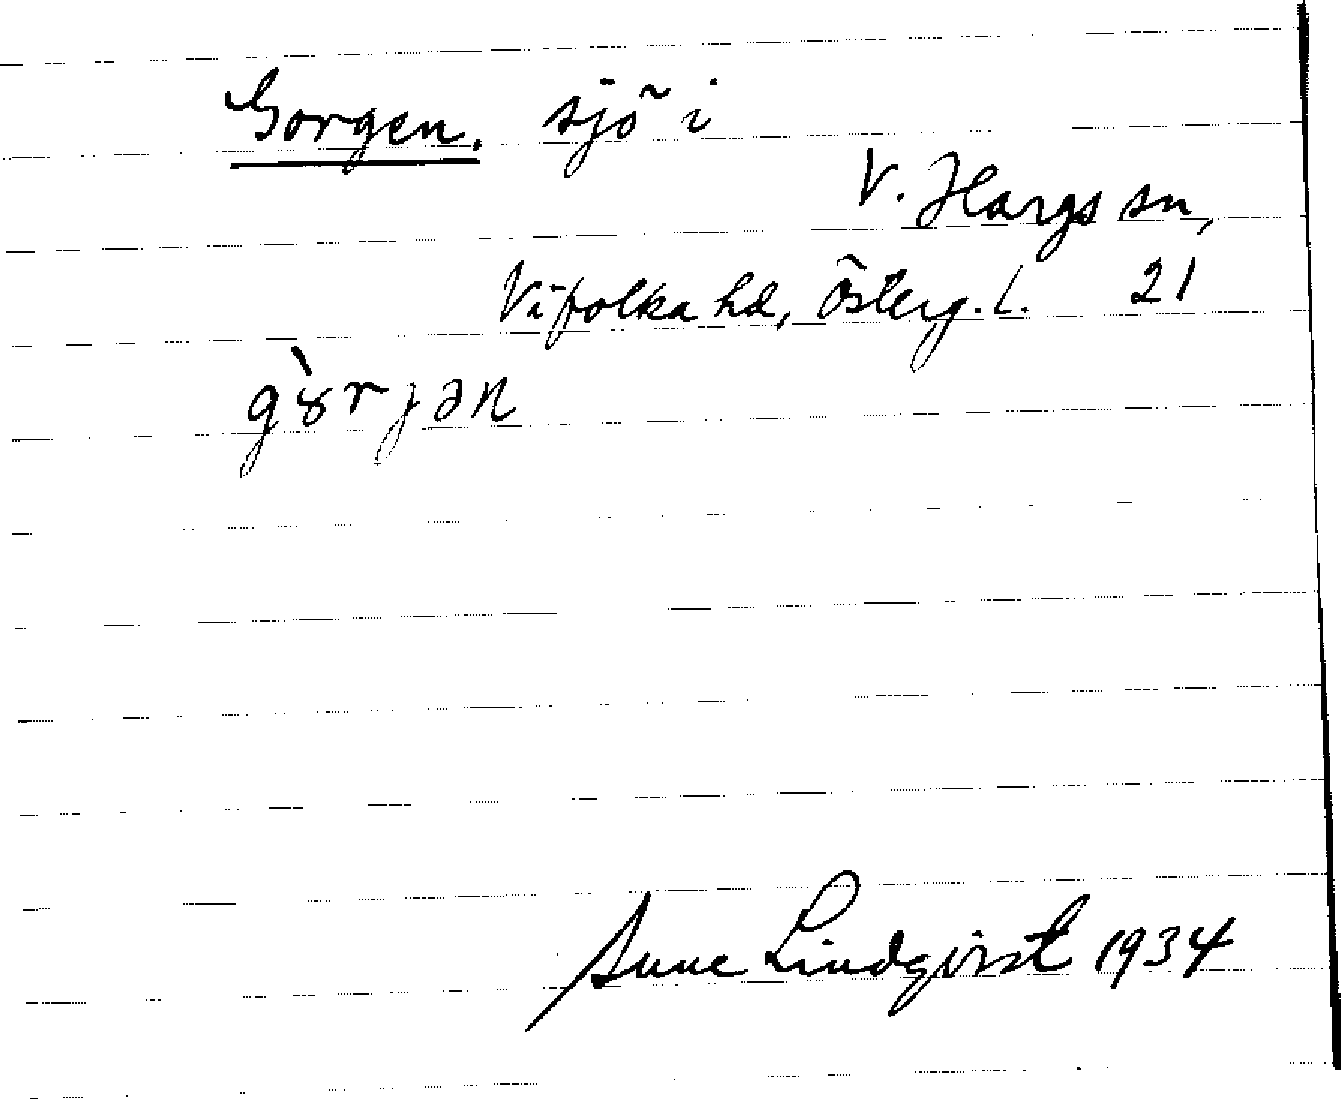 Gorgen. sjö i
V. Hargs sn,
Vifolka hd, Österg. l. 21
g`ȣrjən
Sune Lindqvist 1934